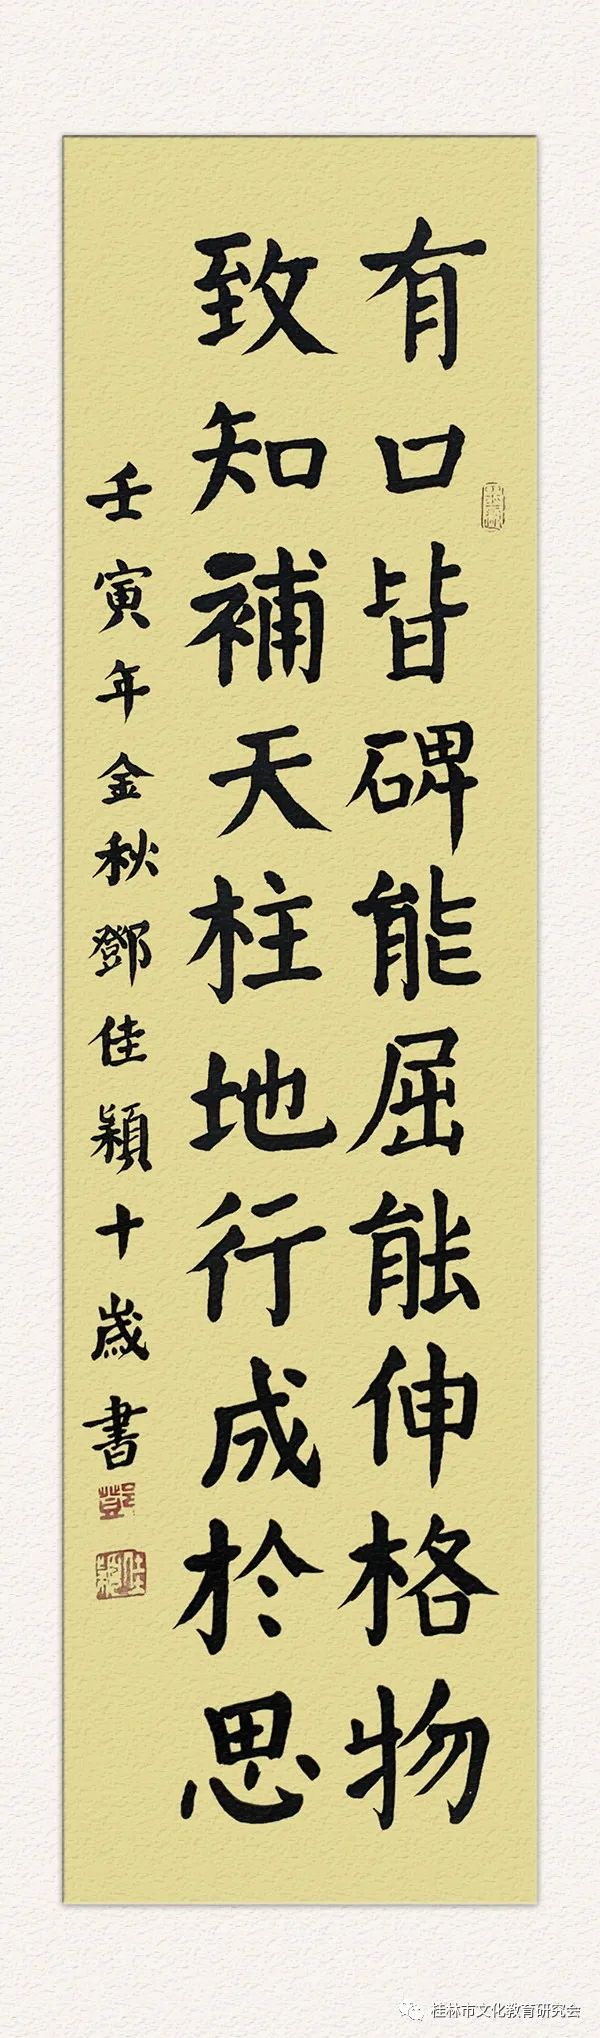 有口皆碑能屈能伸格物
致知補天柱地行成於思
壬寅年金秋鄧佳穎十歲書
鄧
佳穎
桂林市文化教育研究会